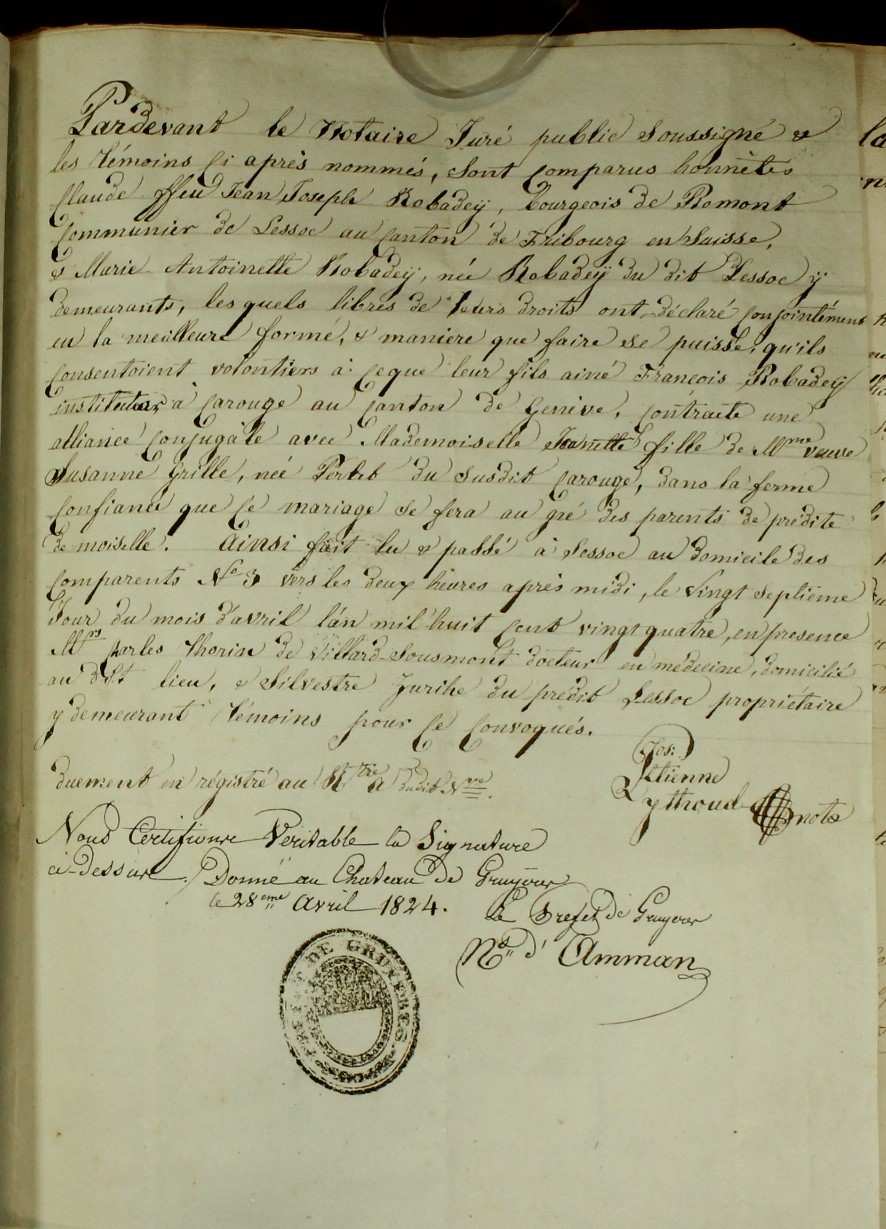 Pardevant le Notaire Juré public Soussigné &
les témoins ci après nommés, sont comparus honnêtes
Claude ffeu Jean Joseph Robadeÿ, bourgeois de Romont
Communier de Lessoc au Canton de Fribourg en Suisse,
& Marie Antoinette Robadeÿ, née Robadeÿ du dit Lessoc y
demeurants, lesquels libres de leurs droits ont déclaré conjointément
en la meilleure forme, & maniere que faire se puisse, qu'ils
Consentoient volontiers à ce que leur fils ainé François Robadeÿ
instituteur à Carouge au Canton de Genève, Contracte une
alliance Conjugale avec Mademoiselle Jeannette fille de Mme veuve
Susanne Grille, née du susdit Carouge, dans la ferme
Confiance que ce mariage se fera au gré des parents de prédite
demoiselle. Ainsi fait lu & passé à Lessoc au domicile des
Comparents No 3 vers les deux heures après midi, le vingt septième
Jour du mois d'avril l'an mil huit cent vingt quatre, en presence
Mrs Charles Thorin de Villard-Sousmont docteur en médecine, domicilié
au dit lieu, & Silvestre du predit Lessoc propriétaire
y demeurant témoins pour ce Convoqués.
Jos:
Etienne
duement en régistré au Rtre du dit Nre.
notre
Nous Certifions Veritable la Signature
ci-dessus. Donné au Chateau de Gruyeres
le 28eme Avril 1824.
Le Prefet de Gruyeres
Ns d'Amman
PREFET DE GRUYERES